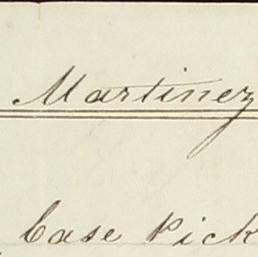 Martinez
Case Pick